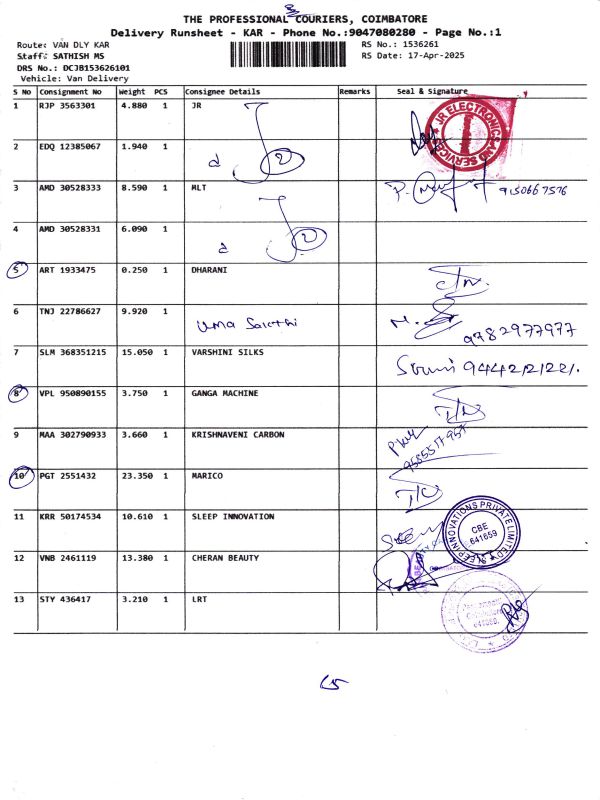 THE PROFESSIONAL COURIERS, COIMBATORE
Delivery Runsheet - KAR - Phone No.:9047080280 - Page No.:1
Route: VAN DLY KAR
RS No.: 1536261
Staff: SATHISH MS
RS Date: 17-Apr-2025
DRS No.: DCJB153626101
Vehicle: Van Delivery
S No Consignment No Weight PCS Consignee Details Remarks Seal & Signature
1 RJP 3563301 4.880 1 JR
JR ELECTRONICS AND SERVICES
2 EDQ 12385067 1.940 1
2
3 AMD 30528333 8.590 1 MLT
9150667576
4 AMD 30528331 6.090 1
2
5 ART 1933475 0.250 1 DHARANI
6 TNJ 22786627 9.920 1
Uma Sakthi
9782977977
7 SLM 368351215 15.050 1 VARSHINI SILKS
9442121221.
8 VPL 950890155 3.750 1 GANGA MACHINE
9 MAA 302790933 3.660 1 KRISHNAVENI CARBON
9585517957
10 PGT 2551432 23.350 1 MARICO
11 KRR 50174534 10.610 1 SLEEP INNOVATION
SLEEP INNOVATIONS PRIVATE LIMITED
CBE
641659
12 VNB 2461119 13.380 1 CHERAN BEAUTY
13 STY 436417 3.210 1 LRT
Coimbatore